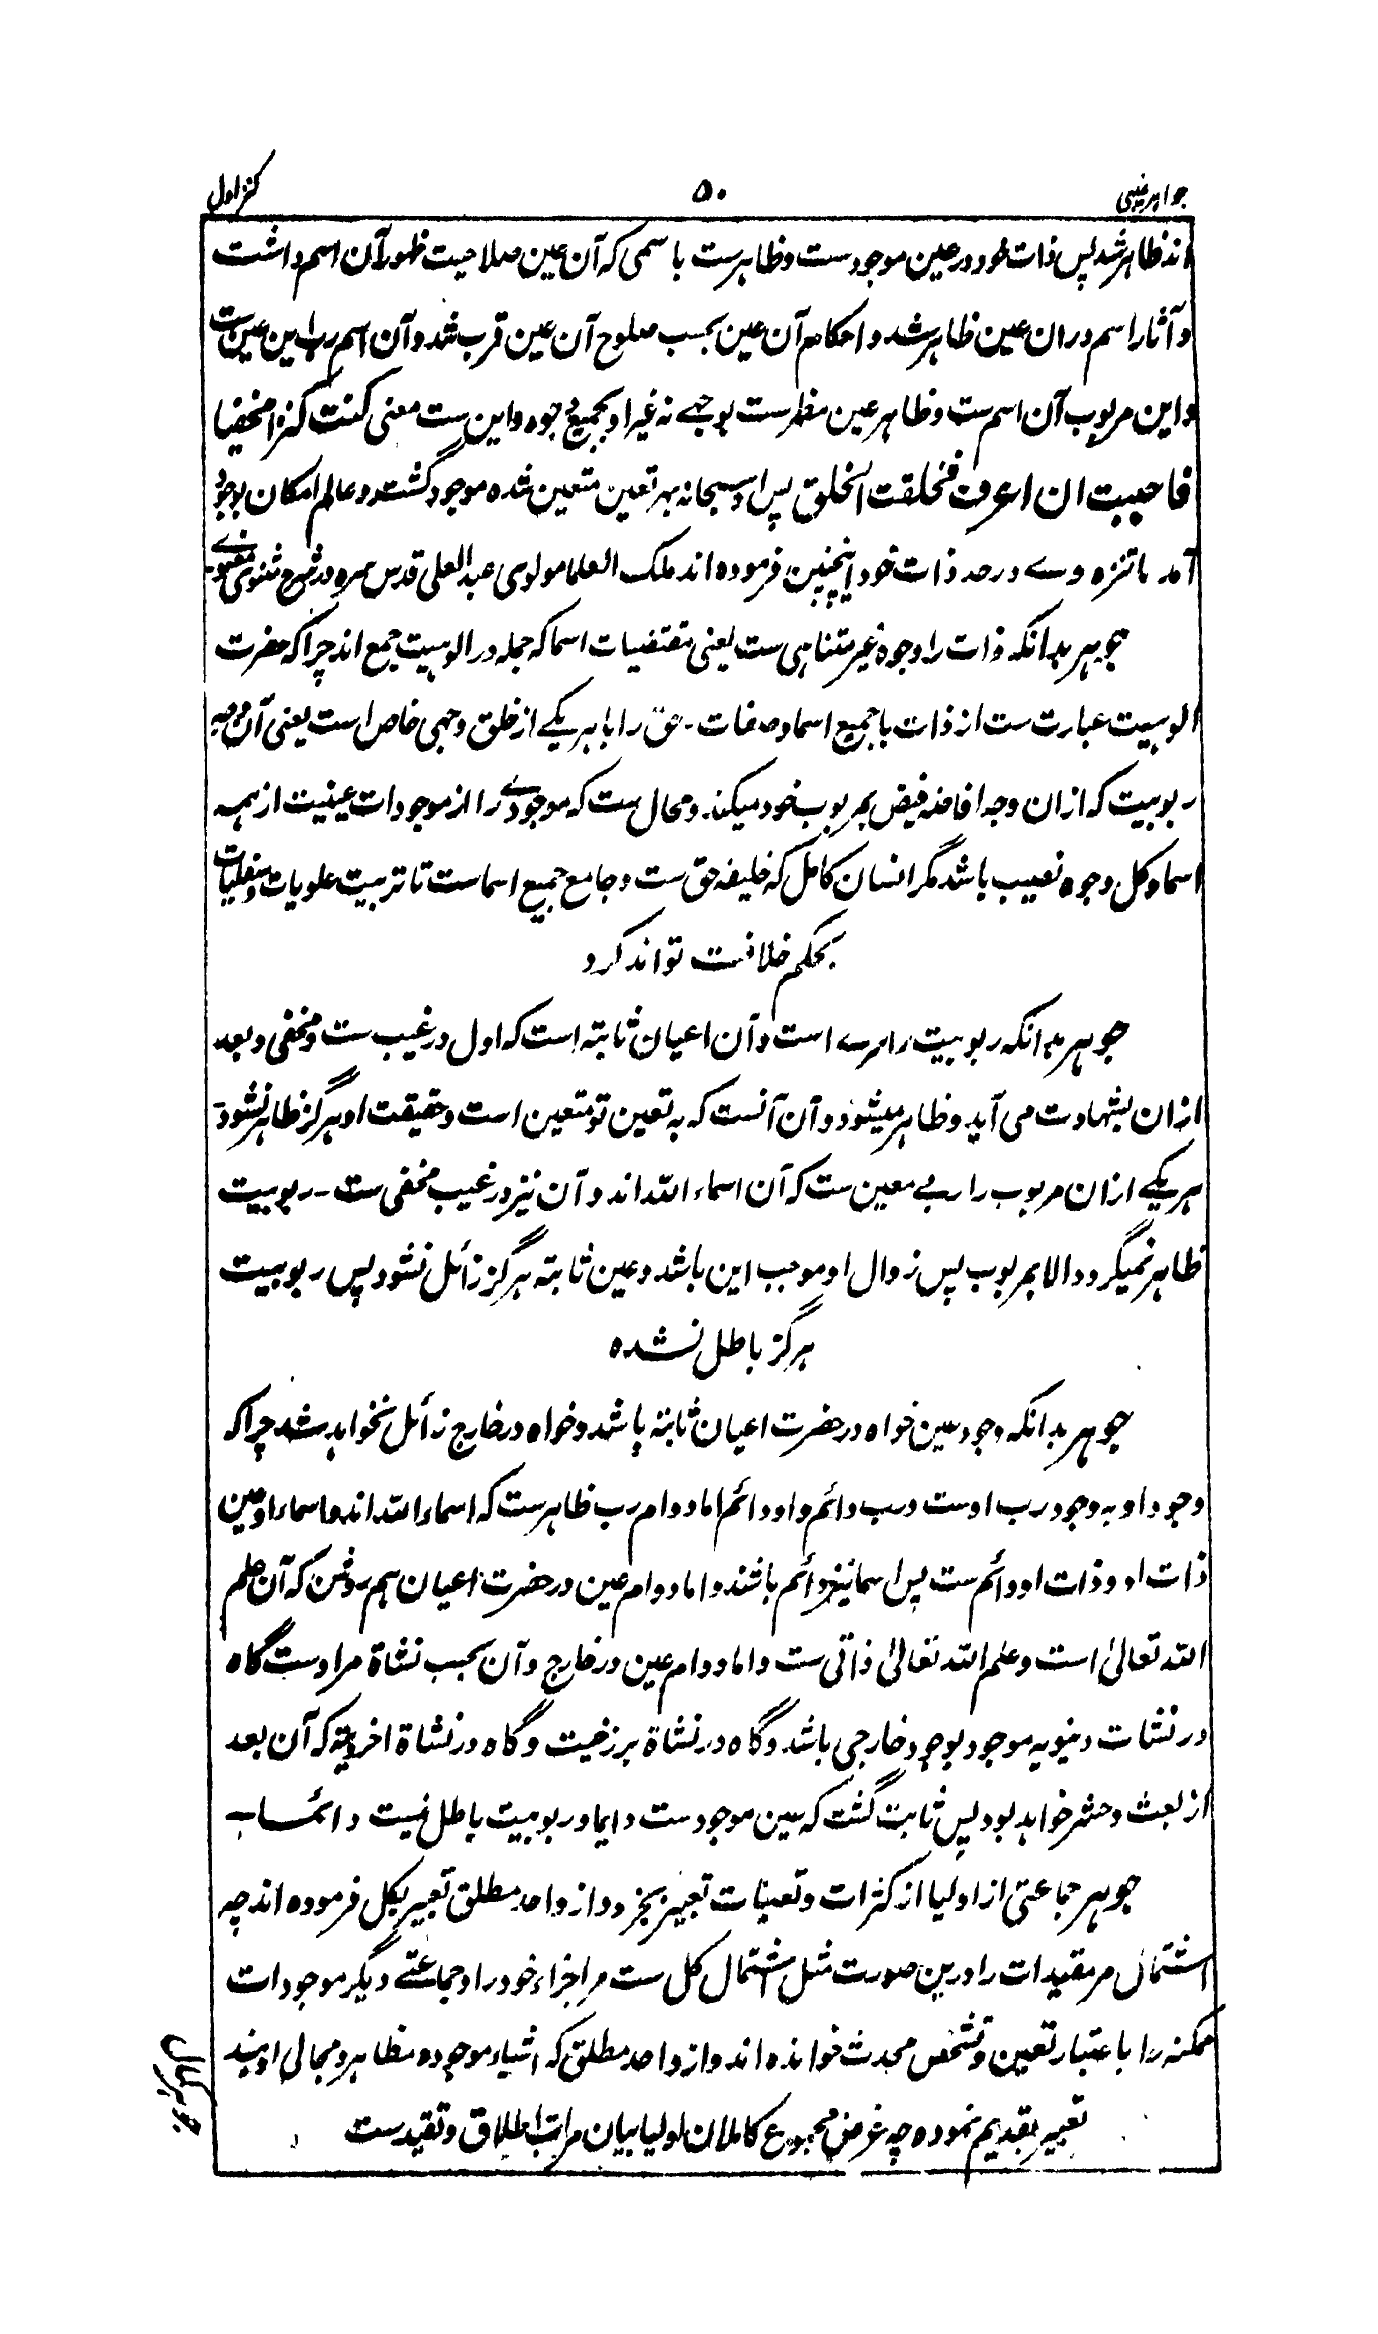 جواہر غیبی
۵۰
کنز اول
اند ظاہر شد پس ذات خود در عین موجودست و ظاہرست باسمی کہ آن عین صلاحیت ظہور آن اسم داشت
و آثار اسم دران عین ظاہر شد و احکام آن عین بحسب صلوح آن عین قرب شد و آن اسم رب این عین ست
و این مربوب آن اسم ست و ظاہر عین مظہرست بوجہے نہ غیر او بجمیع وجوہ و این ست معنی کنت کنزا مخفیا
فاحببت ان اعرف فخلقت الخلق پس او سبحانہ بہر تعین متعین شدہ موجود گشت و عالم امکان بوجود
آمد با تنزہ وے در حد ذات خود اینچنین فرمودہ اند ملک العلما مولوی عبد العلی قدس سرہ در شرح مثنوی معنوے
جوہر بدانکہ ذات را وجوہ غیر متناہی ست یعنی مقتضیات اسما کہ جملہ در الوہیت جمع اند چرا کہ حضرت
الوہیت عبارت ست از ذات با جمیع اسما و صفات ۔ حق را با ہر یکے از خلق وجہی خاص است یعنی آن وجہ
ربوبیت کہ ازان وجہ افاضہ فیض بمربوب خود میکند و محال ست کہ موجودے را از موجودات عینیت از ہمہ
اسما و کل وجوہ نصیب باشد مگر انسان کامل کہ خلیفہ حق ست و جامع جمیع اسماست تا تربیت علویات و سفلیات
بحکم خلافت تواند کرد
جوہر بدانکہ ربوبیت را سرے است و آن اعیان ثابتہ است کہ اول در غیب ست و مخفی و بعد
ازان بشہادت می آید و ظاہر میشود و آن آنست کہ بہ تعین تو متعین است و حقیقت او ہرگز ظاہر نشود
ہر یکے ازان مربوب را ربے معین ست کہ آن اسماء اللہ اند و آن نیز در غیب مخفی ست ۔ ربوبیت
ظاہر نمیگردد الا بمربوب پس زوال او موجب این باشد و عین ثابتہ ہرگز زائل نشود پس ربوبیت
ہرگز باطل نشدہ
جوہر بدانکہ وجود عین خواہ در حضرت اعیان ثابتہ باشد و خواہ در خارج زائل نخواہد شد چرا کہ
وجود او بہ وجود رب اوست و رب دائم و او دائم اما دوام رب ظاہرست کہ اسماء اللہ اند و اسماء او عین
ذات او و ذات او دائم ست پس اسما نیز دائم باشند و اما دوام عین در حضرت اعیان ہم روشن کہ آن علم
اللہ تعالیٰ است و علم اللہ تعالیٰ ذاتی ست و اما دوام عین در خارج و آن بحسب نشاۃ مراوست گاہ
در نشات دنیویہ موجود بوجود خارجی باشد و گاہ در نشاۃ برزخیت و گاہ در نشاۃ اخرویتہ کہ آن بعد
از بعث و حشر خواہد بود پس ثابت گشت کہ عین موجودست دایما و ربوبیت باطل نیست دائما
جوہر جماعتی از اولیا از کثرات و تعینات تعبیر بجزو و از واحد مطلق تعبیر بکل فرمودہ اند چہ
اشتمال مر مقیدات را درین صورت مثل اشتمال کل ست مر اجزاء خود را و جماعتے دیگر موجودات
ممکنہ را باعتبار تعین و تشخص محدث خواندہ اند و از واحد مطلق کہ اشیاء موجودہ مظاہر و مجالی اویند
تعبیر بقدیم نمودہ چہ غرض مجموع کاملان اولیا بیان مراتب اطلاق و تقیدست